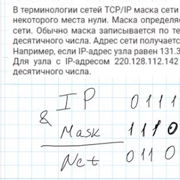 В терминологии сетей TCP/IP маска сети
некоторого места нули. Маска определяе
сети. Обычно маска записывается по те
десятичного числа. Адрес сети получаетс
Например, если IP-адрес узла равен 131.3
Для узла с IP-адресом 220.128.112.142
десятичного числа.
IP 0111
&
Mask 1110
Net 0110